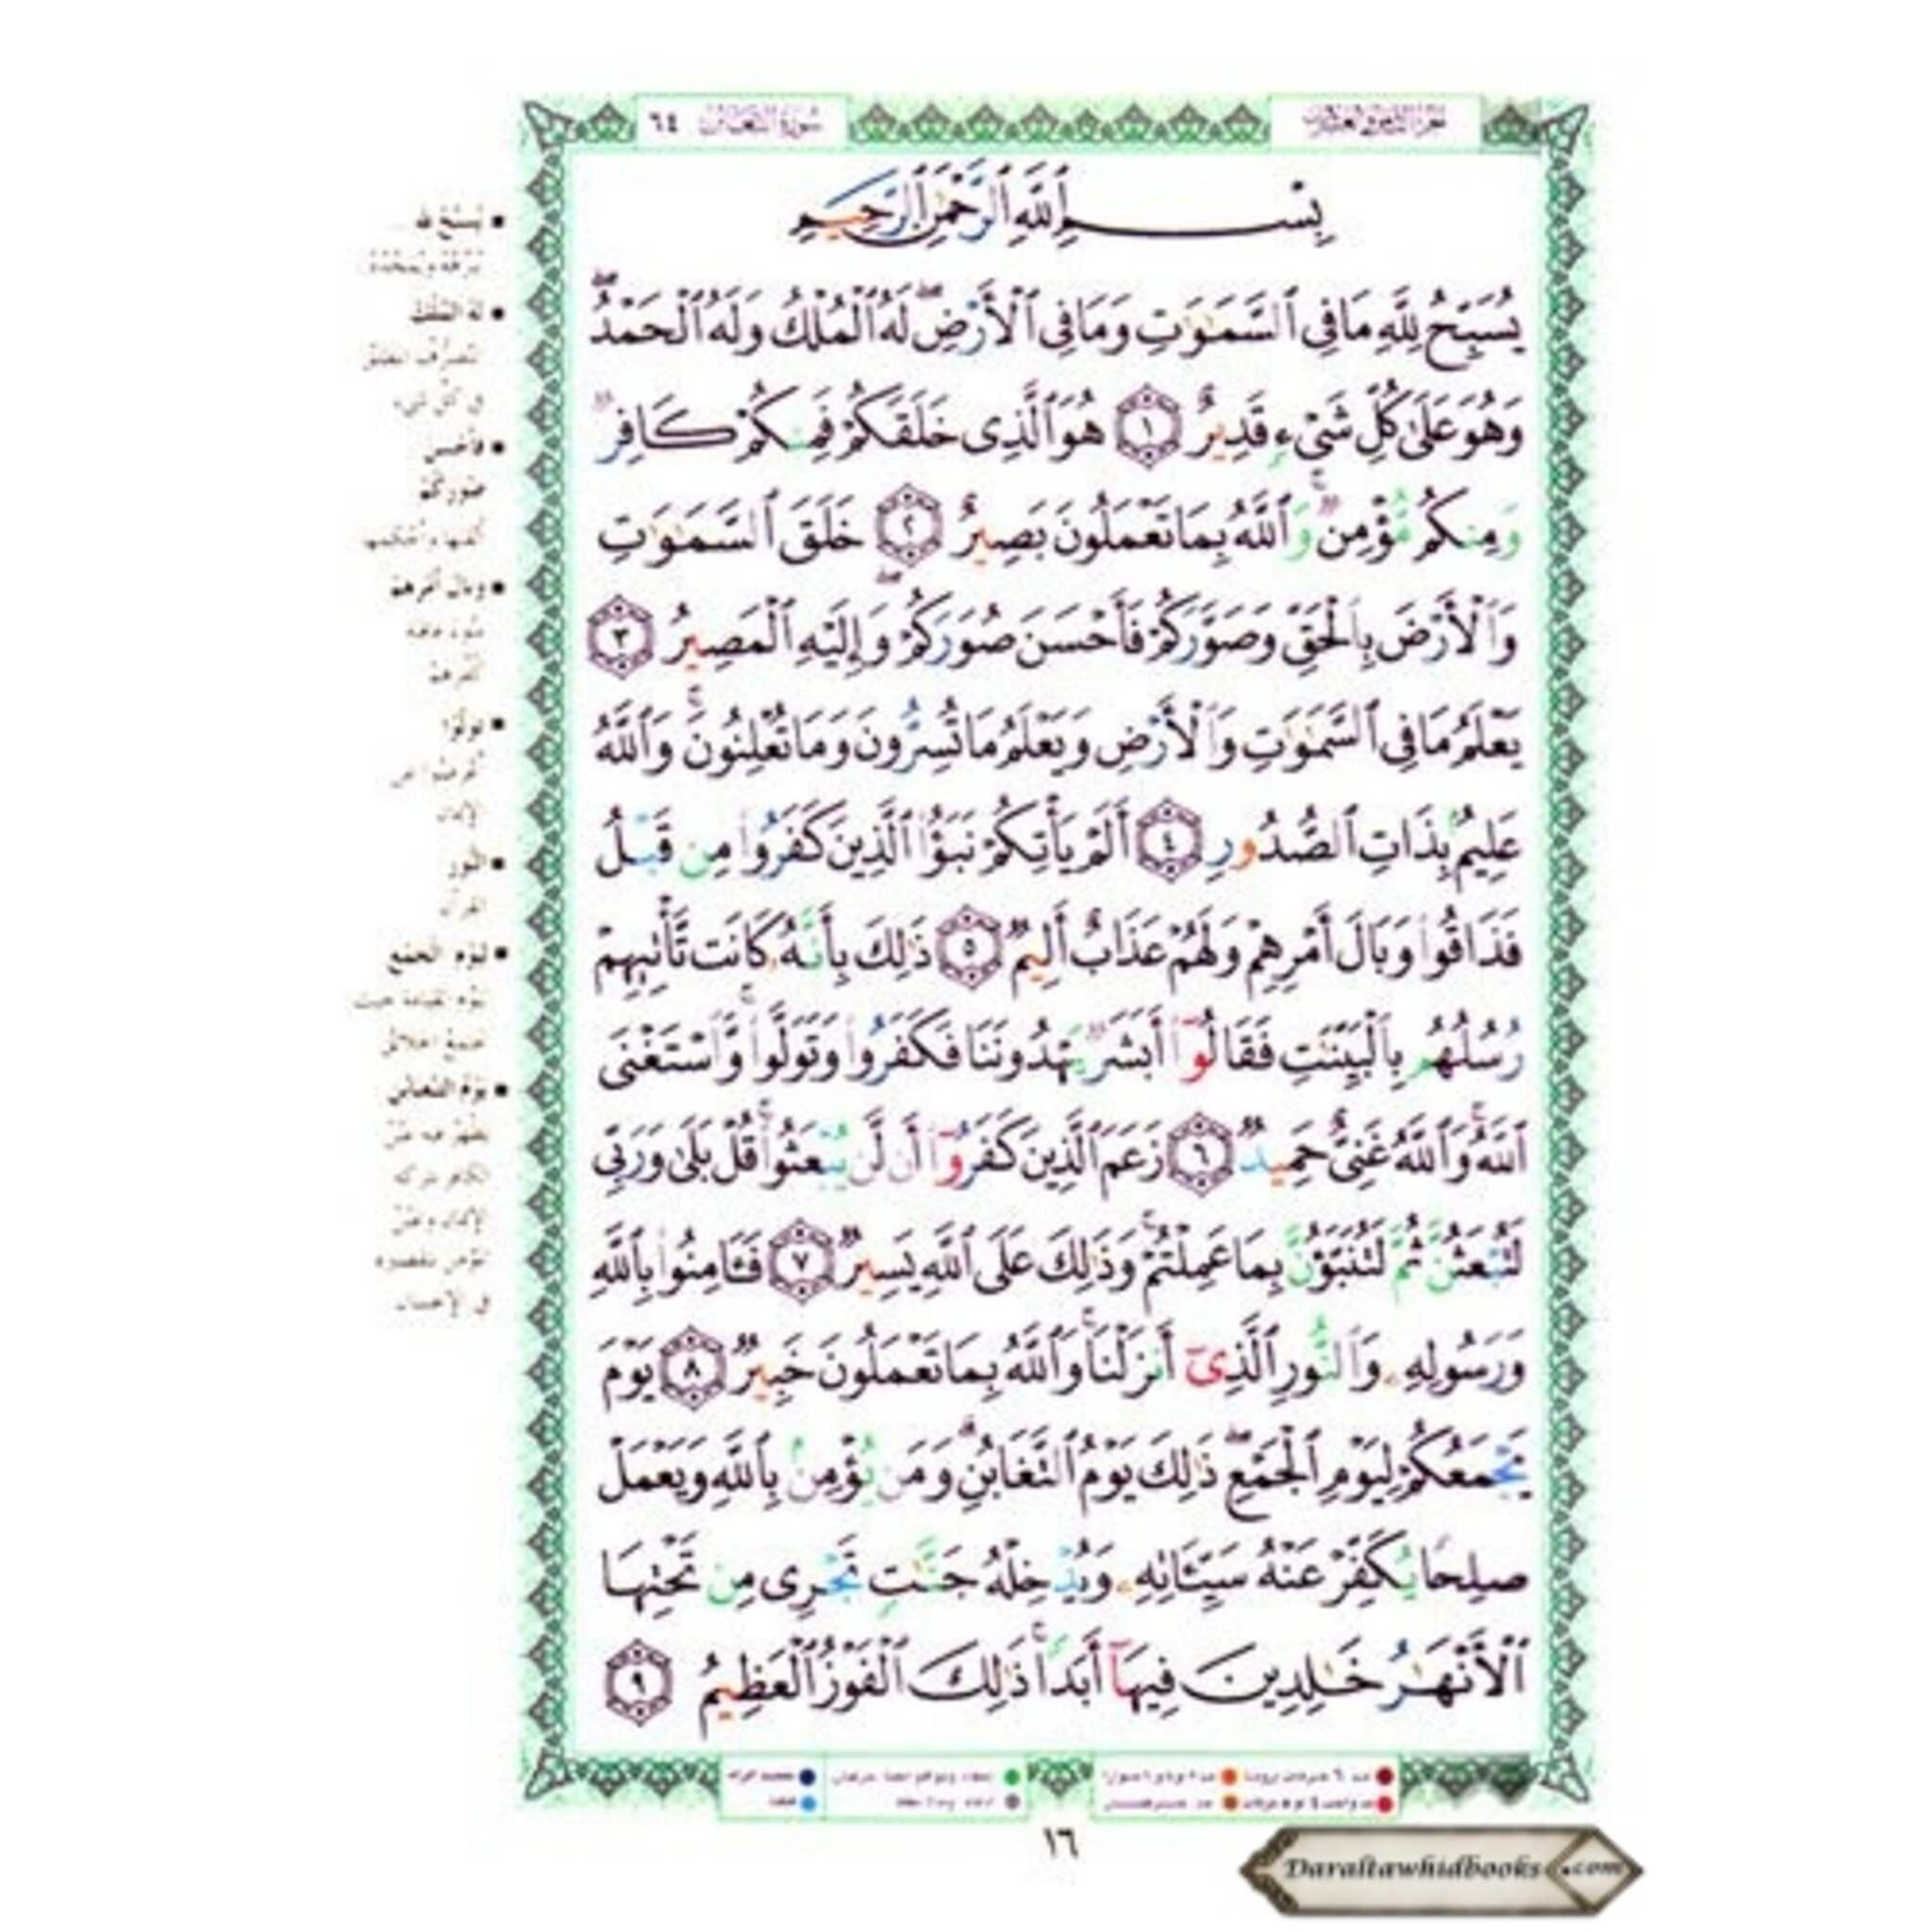 سورة التغابن ٦٤
بِسْمِ ٱللَّهِ ٱلرَّحْمَٰنِ ٱلرَّحِيمِ
يُسَبِّحُ لِلَّهِ مَا فِى ٱلسَّمَٰوَٰتِ وَمَا فِى ٱلْأَرْضِ ۖ لَهُ ٱلْمُلْكُ وَلَهُ ٱلْحَمْدُ ۖ
وَهُوَ عَلَىٰ كُلِّ شَىْءٍ قَدِيرٌ ١ هُوَ ٱلَّذِى خَلَقَكُمْ فَمِنكُمْ كَافِرٌ
وَمِنكُم مُّؤْمِنٌ ۚ وَٱللَّهُ بِمَا تَعْمَلُونَ بَصِيرٌ ٢ خَلَقَ ٱلسَّمَٰوَٰتِ
وَٱلْأَرْضَ بِٱلْحَقِّ وَصَوَّرَكُمْ فَأَحْسَنَ صُوَرَكُمْ ۖ وَإِلَيْهِ ٱلْمَصِيرُ ٣
يَعْلَمُ مَا فِى ٱلسَّمَٰوَٰتِ وَٱلْأَرْضِ وَيَعْلَمُ مَا تُسِرُّونَ وَمَا تُعْلِنُونَ ۚ وَٱللَّهُ
عَلِيمٌۢ بِذَاتِ ٱلصُّدُورِ ٤ أَلَمْ يَأْتِكُمْ نَبَؤُا۟ ٱلَّذِينَ كَفَرُوا۟ مِن قَبْلُ
فَذَاقُوا۟ وَبَالَ أَمْرِهِمْ وَلَهُمْ عَذَابٌ أَلِيمٌ ٥ ذَٰلِكَ بِأَنَّهُۥ كَانَت تَّأْتِيهِمْ
رُسُلُهُم بِٱلْبَيِّنَٰتِ فَقَالُوٓا۟ أَبَشَرٌ يَهْدُونَنَا فَكَفَرُوا۟ وَتَوَلَّوا۟ ۚ وَّٱسْتَغْنَى
ٱللَّهُ ۚ وَٱللَّهُ غَنِىٌّ حَمِيدٌ ٦ زَعَمَ ٱلَّذِينَ كَفَرُوٓا۟ أَن لَّن يُبْعَثُوا۟ ۚ قُلْ بَلَىٰ وَرَبِّى
لَتُبْعَثُنَّ ثُمَّ لَتُنَبَّؤُنَّ بِمَا عَمِلْتُمْ ۚ وَذَٰلِكَ عَلَى ٱللَّهِ يَسِيرٌ ٧ فَـَٔامِنُوا۟ بِٱللَّهِ
وَرَسُولِهِۦ وَٱلنُّورِ ٱلَّذِىٓ أَنزَلْنَا ۚ وَٱللَّهُ بِمَا تَعْمَلُونَ خَبِيرٌ ٨ يَوْمَ
يَجْمَعُكُمْ لِيَوْمِ ٱلْجَمْعِ ۖ ذَٰلِكَ يَوْمُ ٱلتَّغَابُنِ ۗ وَمَن يُؤْمِنۢ بِٱللَّهِ وَيَعْمَلْ
صَٰلِحًا يُكَفِّرْ عَنْهُ سَيِّـَٔاتِهِۦ وَيُدْخِلْهُ جَنَّٰتٍ تَجْرِى مِن تَحْتِهَا
ٱلْأَنْهَٰرُ خَٰلِدِينَ فِيهَآ أَبَدًا ۚ ذَٰلِكَ ٱلْفَوْزُ ٱلْعَظِيمُ ٩
يُسَبِّحُ لله
لَهُ المُلْكُ
في كل شيء
فأحسن
صوركم
وبال أمرهم
تولوا
النور
القرآن
ليوم الجمع
يوم التغابن
١٦
Daraltawhidbooks.com